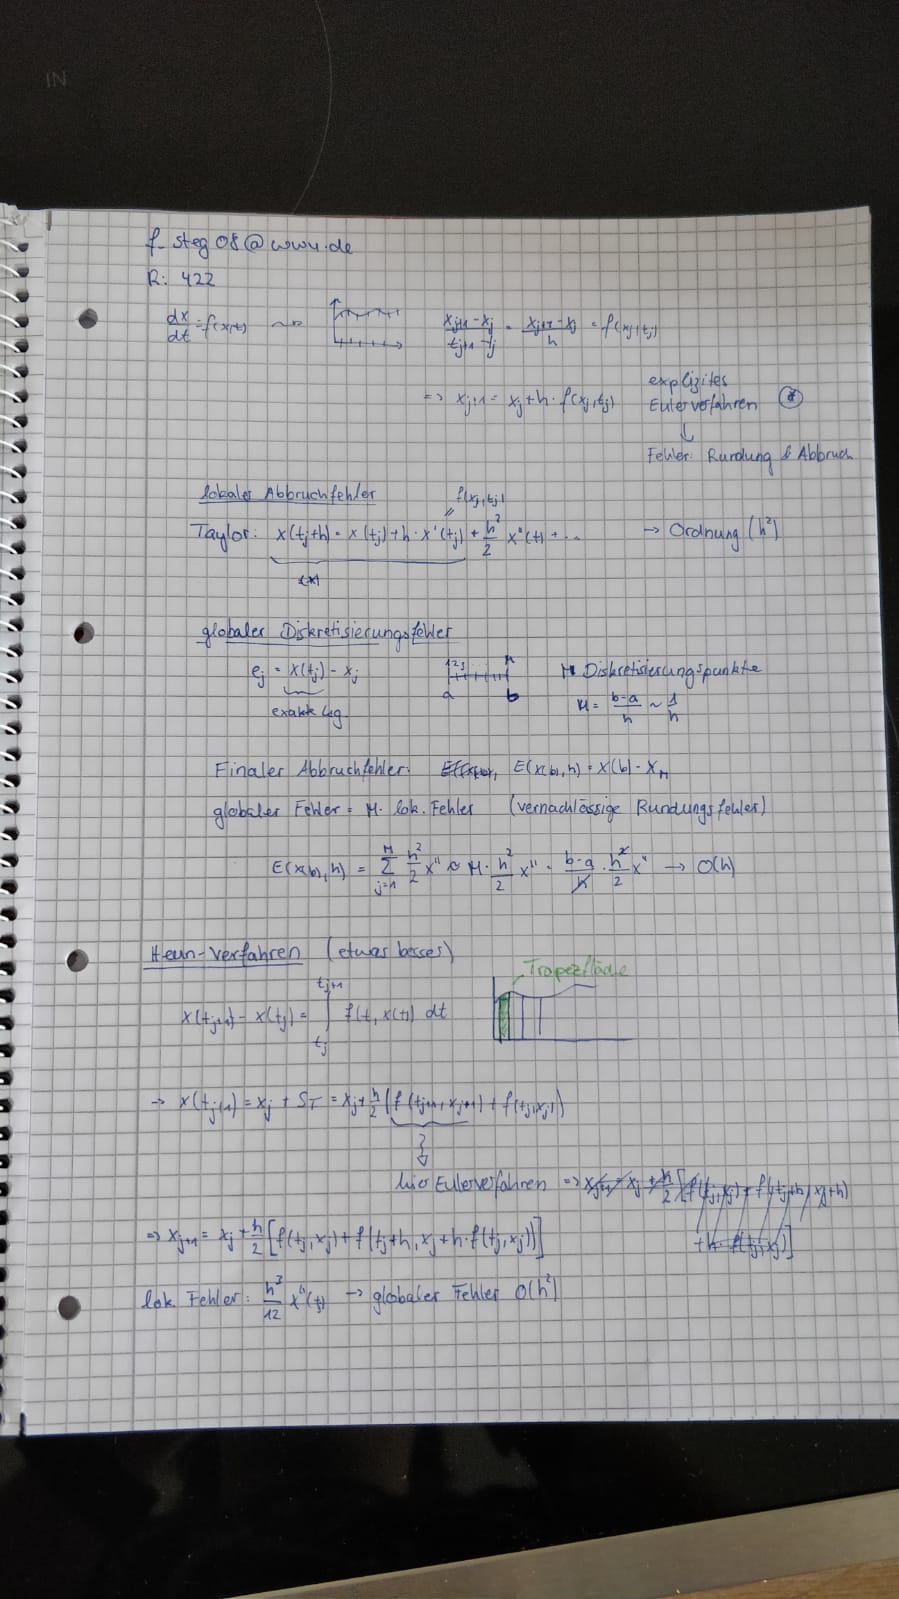 IN
f_steg08@wwu.de
R: 422
dx/dt = f(x,t) ~> (xj+1 - xj)/(tj+1 - tj) = (xj+1 - xj)/h = f(xj, tj)
=> xj+1 = xj + h · f(xj, tj) explizites
Eulerverfahren (*)
↓
Fehler: Rundung & Abbruch
lokaler Abbruchfehler f(xj, tj)
Taylor: x(tj+h) = x(tj) + h · x'(tj) + h²/2 x''(t) + ... → Ordnung (h²)
(*)
globaler Diskretisierungsfehler
ej = x(tj) - xj 1 2 3 M M Diskretisierungspunkte
a b M = (b-a)/h ~ 1/h
exakte Lsg.
Finaler Abbruchfehler: E(x(b), h) = x(b) - xM
globaler Fehler = M · lok. Fehler (vernachlässige Rundungsfehler)
E(x(b), h) = Σ_{j=1}^{M} h²/2 x'' ≈ M · h²/2 x'' = (b-a)/h · h²/2 x'' → O(h)
Heun-Verfahren (etwas besser)
Trapezfläche
x(tj+1) - x(tj) = ∫_{tj}^{tj+1} f(t, x(t)) dt
→ x(tj+1) = xj + ST = xj + h/2 (f(tj+1, xj+1) + f(tj, xj))
hier Eulerverfahren =>
=> xj+1 = xj + h/2 [f(tj, xj) + f(tj+h, xj + h · f(tj, xj))]
lok. Fehler: h³/12 x''(tj) → globaler Fehler O(h²)